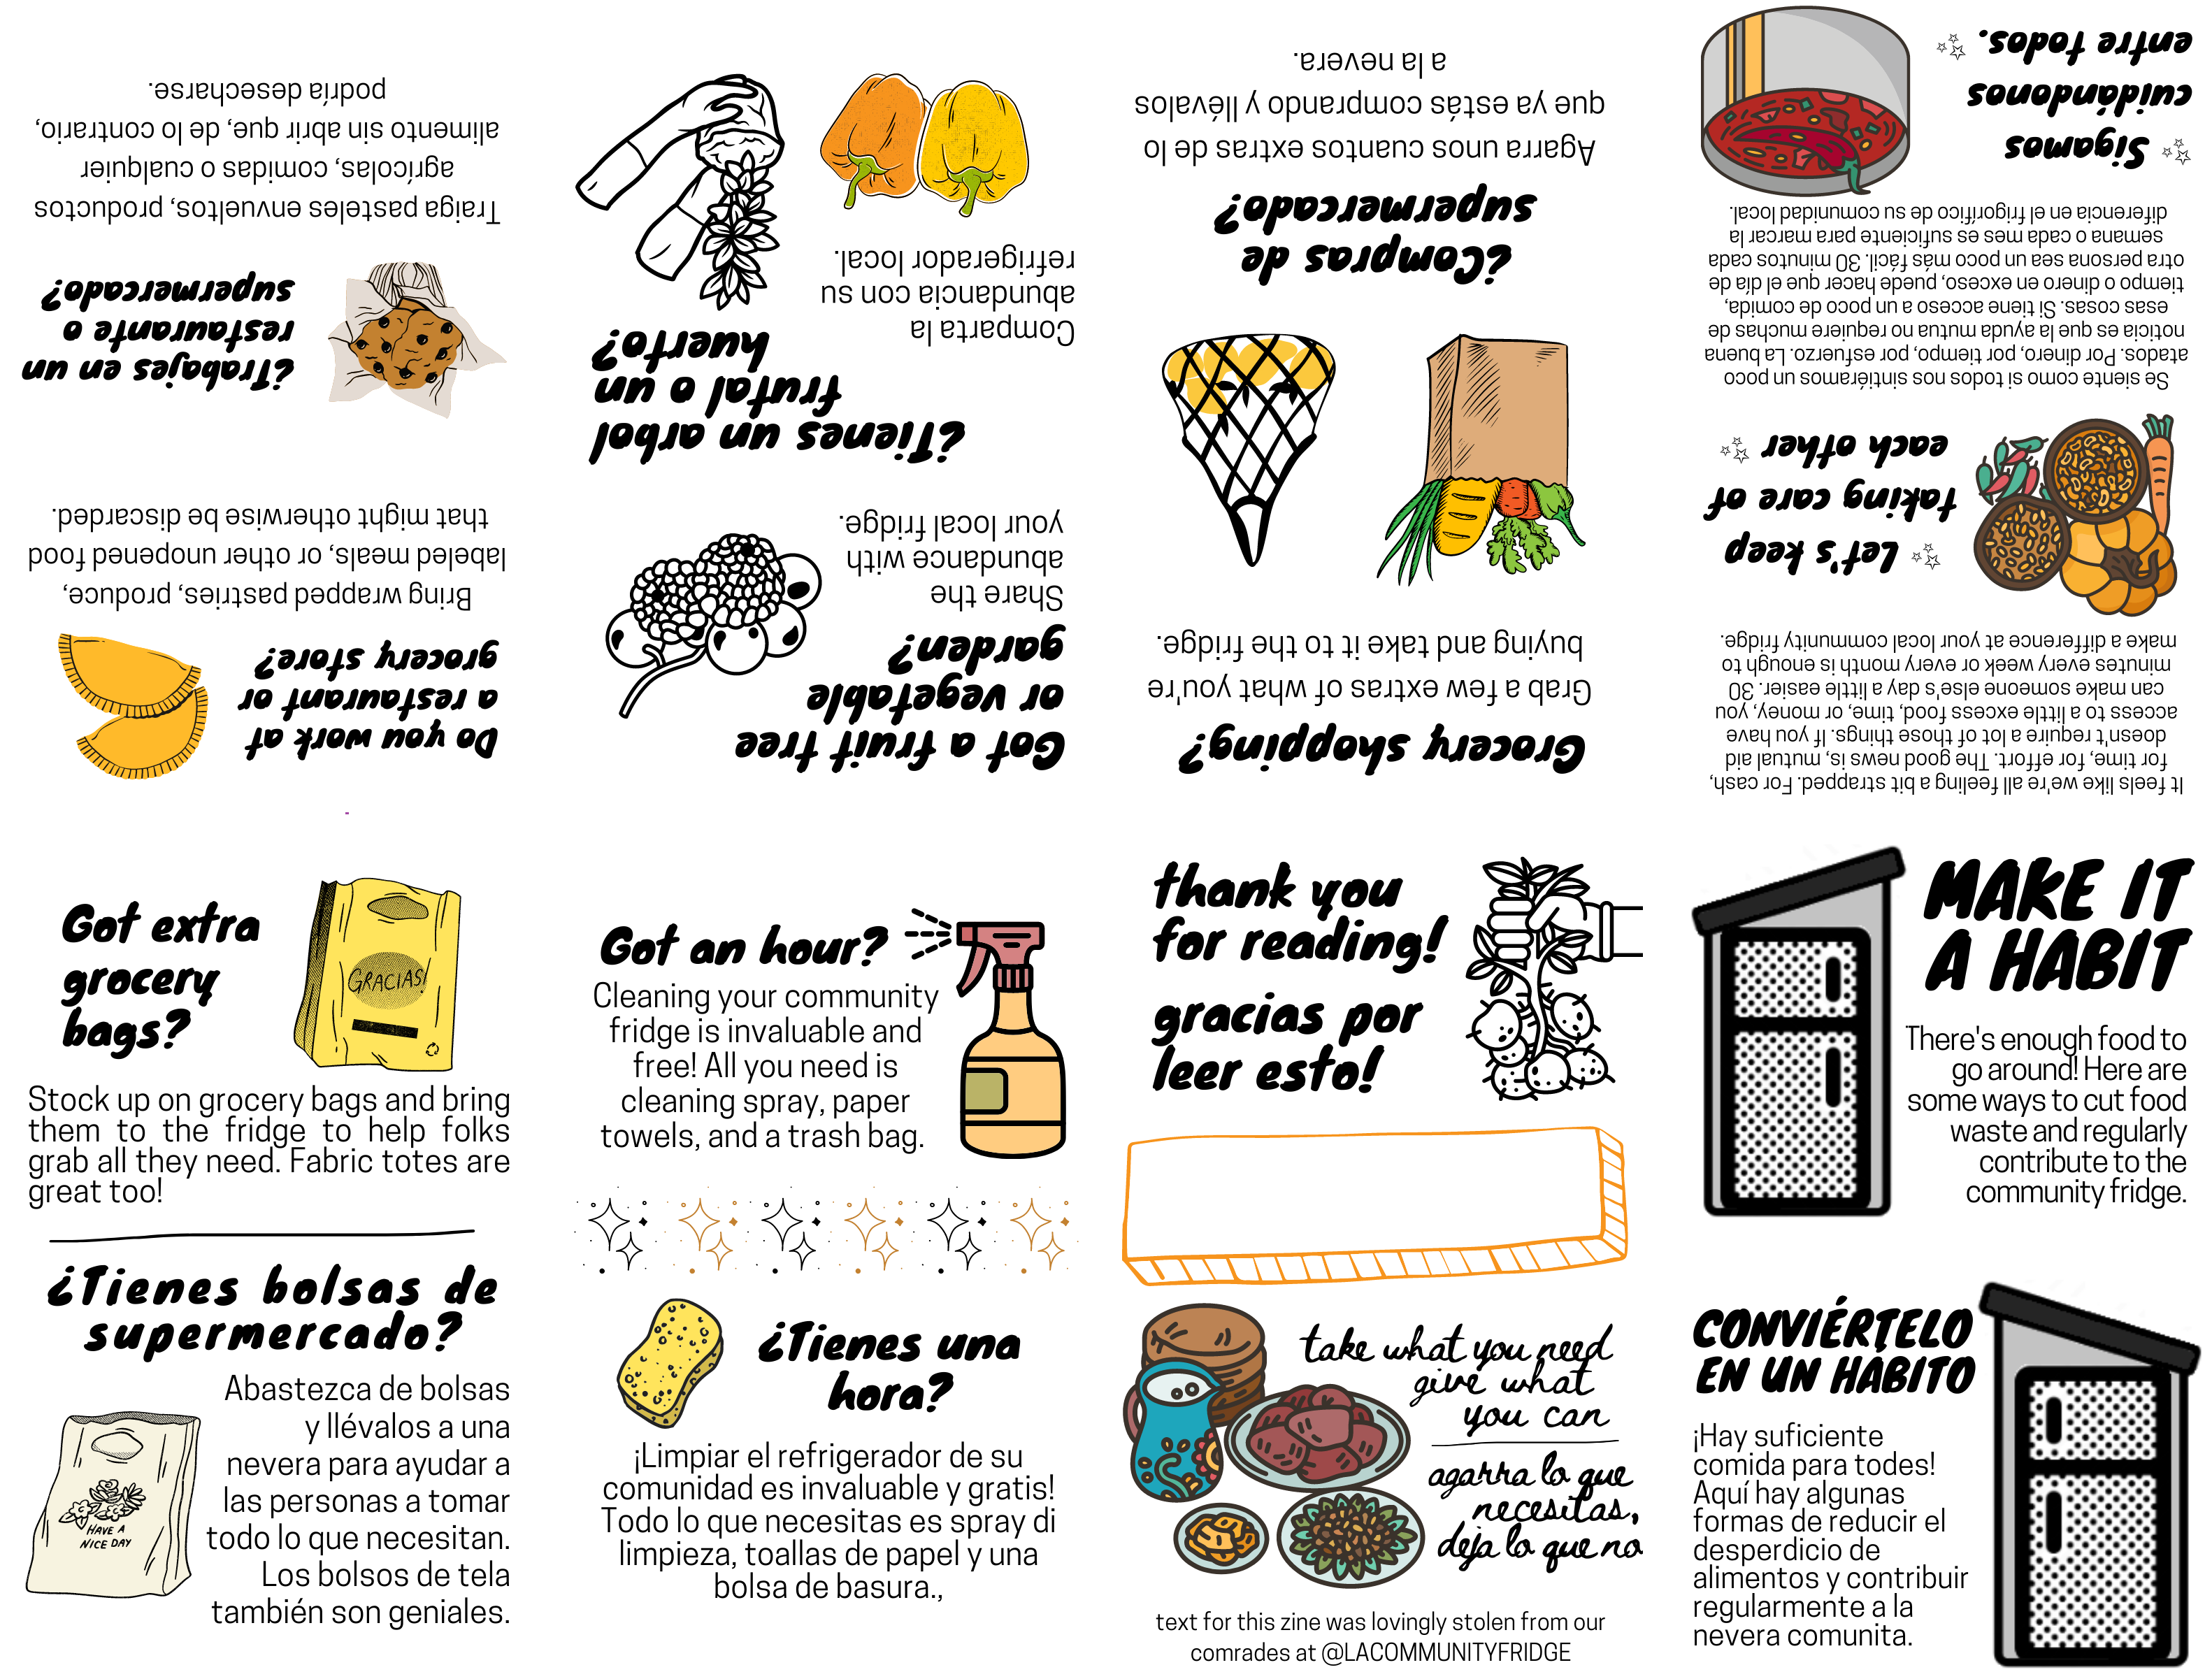 MAKE IT
A HABIT
There's enough food to
go around! Here are
some ways to cut food
waste and regularly
contribute to the
community fridge.
CONVIÉRTELO
EN UN HÁBITO
¡Hay suficiente
comida para todes!
Aquí hay algunas
formas de reducir el
desperdicio de
alimentos y contribuir
regularmente a la
nevera comunita.
It feels like we're all feeling a bit strapped. For cash,
for time, for effort. The good news is, mutual aid
doesn't require a lot of those things. If you have
access to a little excess food, time, or money, you
can make someone else's day a little easier. 30
minutes every week or every month is enough to
make a difference at your local community fridge.
Let's keep
taking care of
each other
Se siente como si todos nos sintiéramos un poco
atados. Por dinero, por tiempo, por esfuerzo. La buena
noticia es que la ayuda mutua no requiere muchas de
esas cosas. Si tiene acceso a un poco de comida,
tiempo o dinero en exceso, puede hacer que el día de
otra persona sea un poco más fácil. 30 minutos cada
semana o cada mes es suficiente para marcar la
diferencia en el frigorífico de su comunidad local.
Sigamos
cuidándonos
entre todos.
Grocery shopping?
Grab a few extras of what you're
buying and take it to the fridge.
¿Compras de
supermercado?
Agarra unos cuantos extras de lo
que ya estás comprando y llévalos
a la nevera.
Got a fruit tree
or vegetable
garden?
Share the
abundance with
your local fridge.
¿Tienes un arbol
frutal o un
huerto?
Comparta la
abundancia con su
refrigerador local.
Do you work at
a restaurant or
grocery store?
Bring wrapped pastries, produce,
labeled meals, or other unopened food
that might otherwise be discarded.
¿Trabajes en un
restaurante o
supermercado?
Traiga pasteles envueltos, productos
agrícolas, comidas o cualquier
alimento sin abrir que, de lo contrario,
podría desecharse.
Got extra
grocery
bags?
GRACIAS!
Stock up on grocery bags and bring
them to the fridge to help folks
grab all they need. Fabric totes are
great too!
¿Tienes bolsas de
supermercado?
Abastezca de bolsas
y llévalos a una
nevera para ayudar a
las personas a tomar
todo lo que necesitan.
Los bolsos de tela
también son geniales.
HAVE A
NICE DAY
Got an hour?
Cleaning your community
fridge is invaluable and
free! All you need is
cleaning spray, paper
towels, and a trash bag.
¿Tienes una
hora?
¡Limpiar el refrigerador de su
comunidad es invaluable y gratis!
Todo lo que necesitas es spray di
limpieza, toallas de papel y una
bolsa de basura.,
thank you
for reading!
gracias por
leer esto!
take what you need
give what
you can
agarra lo que
necesitas,
deja lo que no
text for this zine was lovingly stolen from our
comrades at @LACOMMUNITYFRIDGE